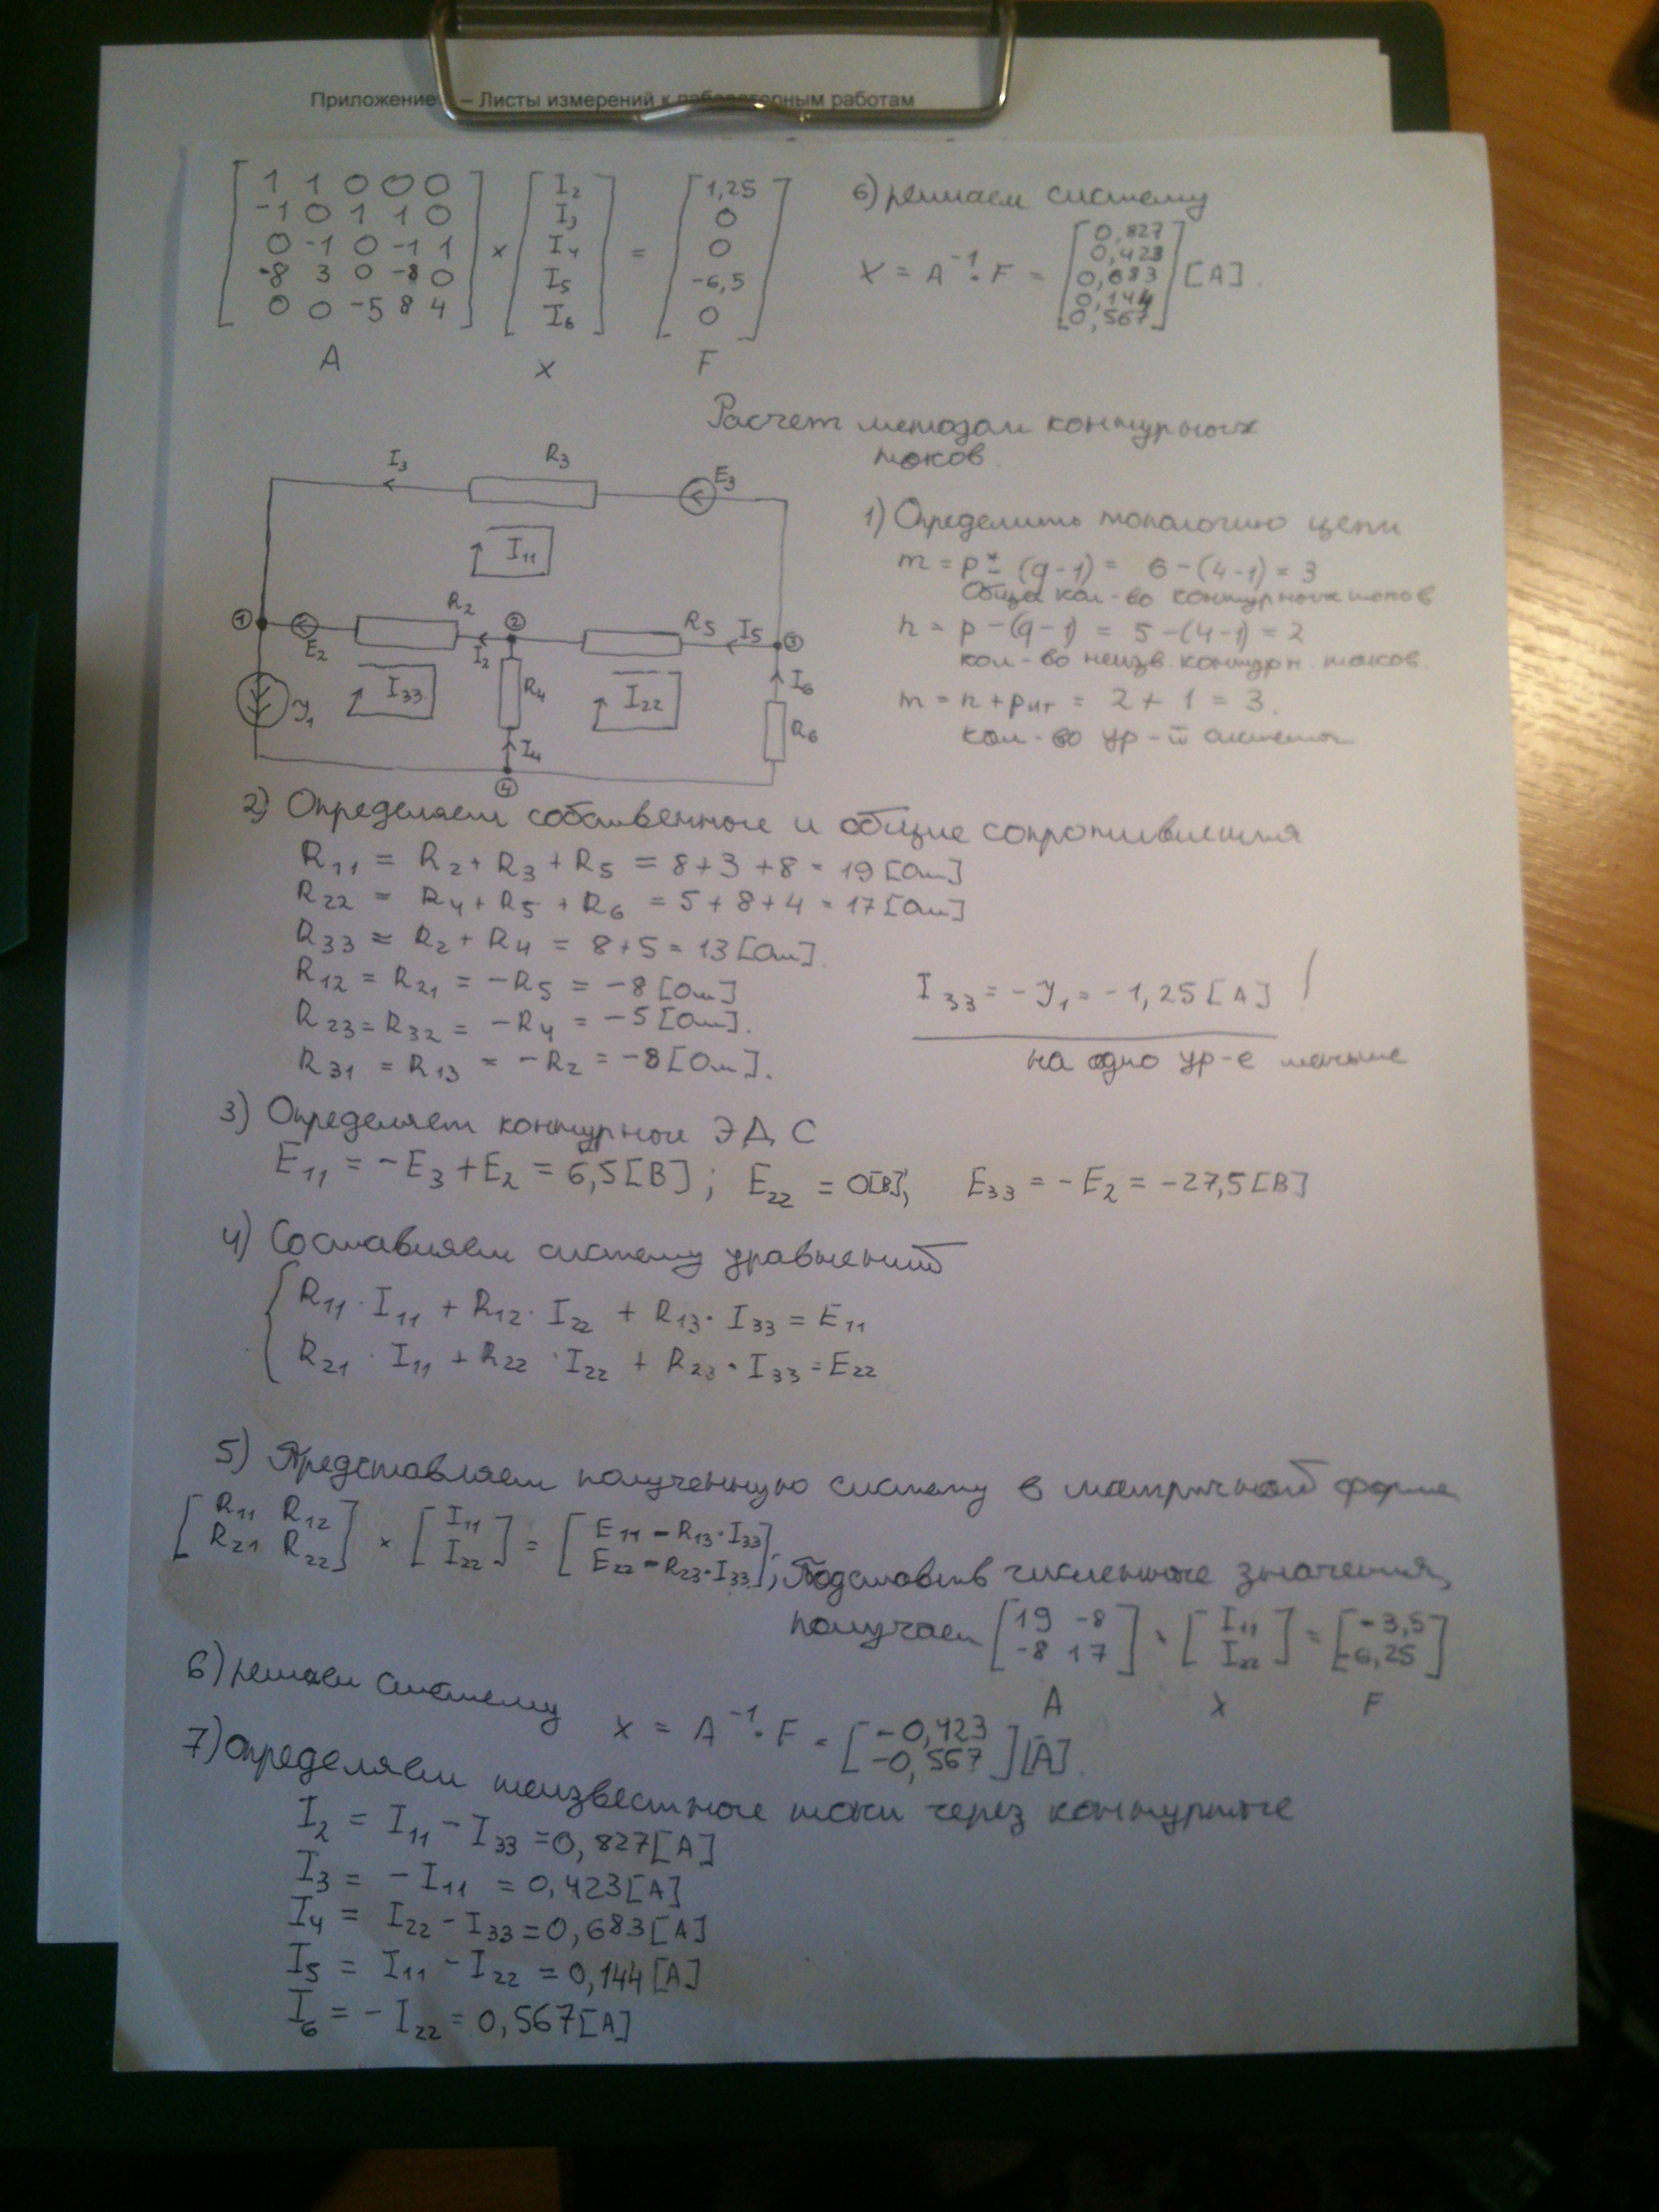 Приложение – Листы измерений к лабораторным работам
[1 1 0 0 0] [I2] [1,25]
[-1 0 1 1 0] [I3] [0]
[0 -1 0 -1 1] × [I4] = [0]
[-8 3 0 -8 0] [I5] [-6,5]
[0 0 -5 8 4] [I6] [0]
A X F
6) решаем систему
X = A⁻¹·F = [0,827 0,423 0,683 0,144 0,567] [A].
Расчет методом контурных
токов.
I3 R3 E3
I11
1 E2 R2 I2 2 R5 I5 3
J1 I33 R4 I22 I6
I4 R6
4
1) Определить топологию цепи
m = p* - (q-1) = 6-(4-1) = 3
Общее кол-во контурных токов
n = p-(q-1) = 5-(4-1) = 2
кол-во неизв. контурн. токов.
m = n + pит = 2 + 1 = 3.
кол-во ур-й системы
2) Определяем собственные и общие сопротивления
R11 = R2 + R3 + R5 = 8+3+8 = 19 [Ом]
R22 = R4 + R5 + R6 = 5+8+4 = 17 [Ом]
R33 = R2 + R4 = 8+5 = 13 [Ом].
R12 = R21 = -R5 = -8 [Ом]
R23 = R32 = -R4 = -5 [Ом].
R31 = R13 = -R2 = -8 [Ом].
I33 = -J1 = -1,25 [A] !
на одно ур-е меньше
3) Определяем контурные ЭДС
E11 = -E3 + E2 = 6,5 [В]; E22 = 0 [В]; E33 = -E2 = -27,5 [В]
4) Составляем систему уравнений
R11·I11 + R12·I22 + R13·I33 = E11
R21·I11 + R22·I22 + R23·I33 = E22
5) Представляем полученную систему в матричной форме
[R11 R12] [I11] [E11 - R13·I33]
[R21 R22] × [I22] = [E22 - R23·I33]; Подставив численные значения,
получаем [19 -8] [I11] [-3,5]
[-8 17] · [I22] = [-6,25]
A X F
6) решаем систему X = A⁻¹·F = [-0,423 -0,567] [A].
7) Определяем неизвестные токи через контурные
I2 = I11 - I33 = 0,827 [A]
I3 = -I11 = 0,423 [A]
I4 = I22 - I33 = 0,683 [A]
I5 = I11 - I22 = 0,144 [A]
I6 = -I22 = 0,567 [A]